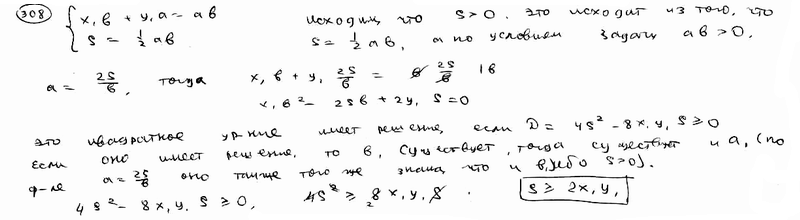 308 { x₁b + y₁a = ab исходим, что S>0. Это исходит из того, что
S = ½ab S = ½ab, а по условиям задачи ab>0.
a = 2S/b, тогда x₁b + y₁ 2S/b = b 2S/b | b
x₁b² - 2Sb + 2y₁S = 0
это квадратное ур-ние имеет решение, если D = 4S² - 8x₁y₁S ≥ 0
Если оно имеет решение, то b, существует, тогда существует и a, (по
ф-ле a = 2S/b оно также того же знака, что и b, ибо S>0).
4S² - 8x₁y₁S ≥ 0, 4S² ≥ 8x₁y₁S. S ≥ 2x₁y₁